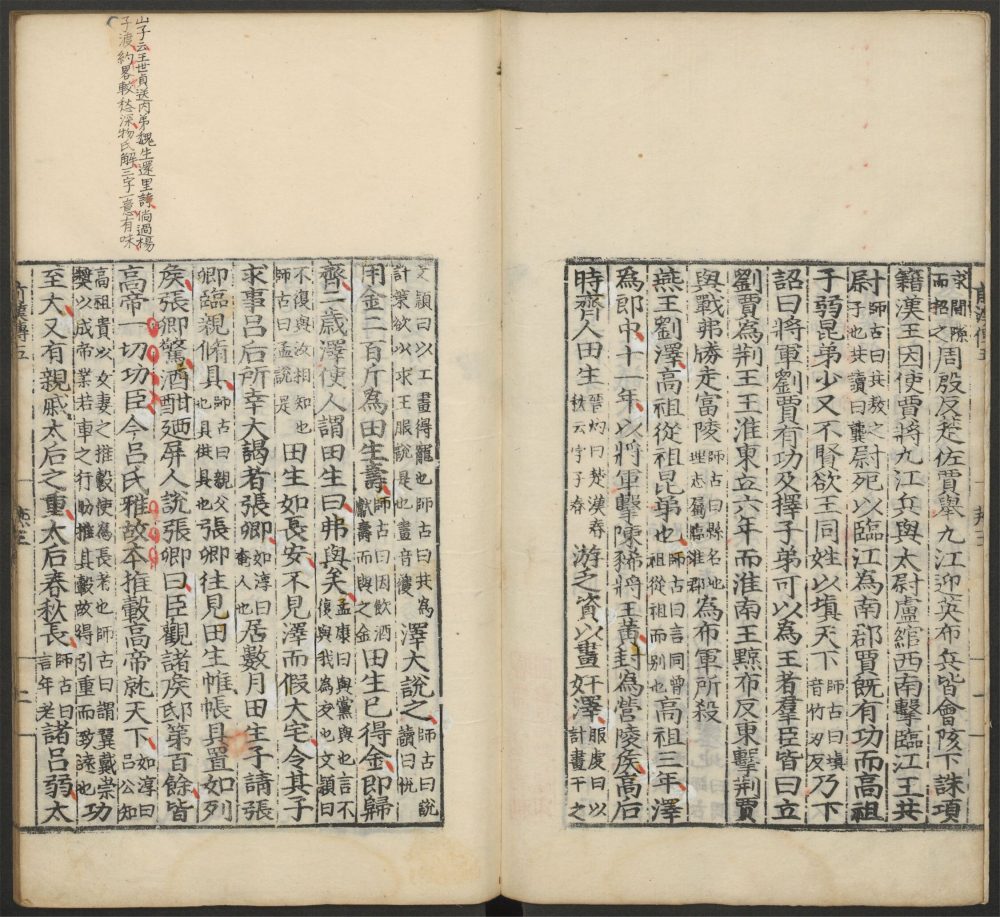 求間隙而招之周殷反楚佐賈舉九江迎英布兵皆會陔下誅項
籍漢王因使賈將九江兵與太尉盧綰西南擊臨江王共
尉師古曰共敖之子也共讀曰龔尉死以臨江為南郡賈既有功而高祖
子弱昆弟少又不賢欲王同姓以塡天下師古曰塡音竹刃反乃下
詔曰將軍劉賈有功及擇子弟可以為王者羣臣皆曰立
劉賈為荆王王淮東立六年而淮南王黥布反東擊荆賈
與戰弗勝走富陵師古曰縣名也地理志屬臨淮郡為布軍所殺
燕王劉澤高祖從祖昆弟也師古曰言同曾祖從祖而别也高祖三年澤
為郎中十一年以將軍擊陳豨將王黃封為營陵侯高后
時齊人田生晉灼曰楚漢春秋云字子春游乏資以畫奸澤服虔曰以計畫干之
文穎曰以工畫得寵也師古曰共為計策欲以求王服說是也畫音獲澤大說之師古曰說讀曰悦
用金二百斤為田生壽師古曰因飲酒獻壽而與之金田生已得金即歸
齊二歲澤使人謂田生曰弗與矣孟康曰與黨與也言不復與我為友也文穎曰不復與汝相知也師古曰孟說是
田生如長安不見澤而假大宅令其子
求事呂后所幸大謁者張卿如淳曰奄人也居數月田生子請張
卿臨親脩具師古曰親父也具供具也張卿往見田生帷帳具置如列
侯張卿驚酒酣廼屏人說張卿曰臣觀諸侯邸第百餘皆
高帝一切功臣今呂氏雅故本推轂高帝就天下如淳曰呂公知高祖貴以女妻之推轂使為長者也師古曰謂翼戴崇獎以成帝業若車之行助推其轂故得引重而致遠也功
至大又有親戚太后之重太后春秋長師古曰言年老諸呂弱太
山子云王世貞送內弟魏生還里詩倘過楊
子渡約畧較愁深物氏解三字一意有味